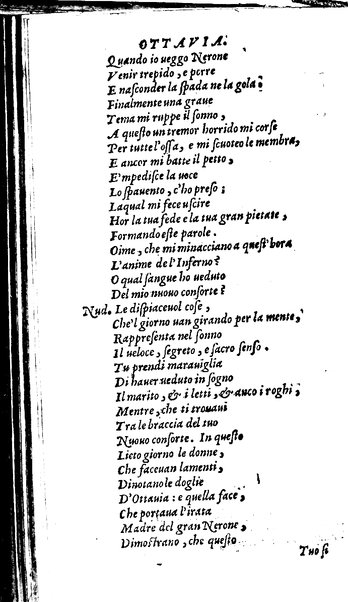 OTTAVIA.
Quando io ueggo Nerone
Venir trepido, e porre
E nasconder la spada ne la gola?
Finalmente una graue
Tema mi ruppe il sonno,
A questo un tremor horrido mi corse
Per tutte l'ossa, e mi scuoteo le membra,
E ancor mi batte il petto,
E'mpedisce la uoce
Lo spauento, c'ho preso;
Laqual mi fece uscire
Hor la tua fede e la tua gran pietate,
Formando este parole.
Oime, che mi minacciano a quest'hora
L'anime de l'Inferno?
O qual sangue ho ueduto
Del mio nuouo consorte?
Nud. Le dispiaceuol cose,
Che'l giorno uan girando per la mente,
Rappresenta nel sonno
Il ueloce, segreto, e sacro senso.
Tu prendi marauiglia
Di hauer ueduto in sogno
Il marito, & i letti, & anco i roghi,
Mentre, che ti trouaui
Tra le braccia del tuo
Nuouo consorte. In questo
Lieto giorno le donne,
Che faceuan lamenti,
Dinotano le doglie
D'Ottauia: e quella face,
Che portaua l'irata
Madre del gran Nerone,
Dimostrano, che questo
Tuo si